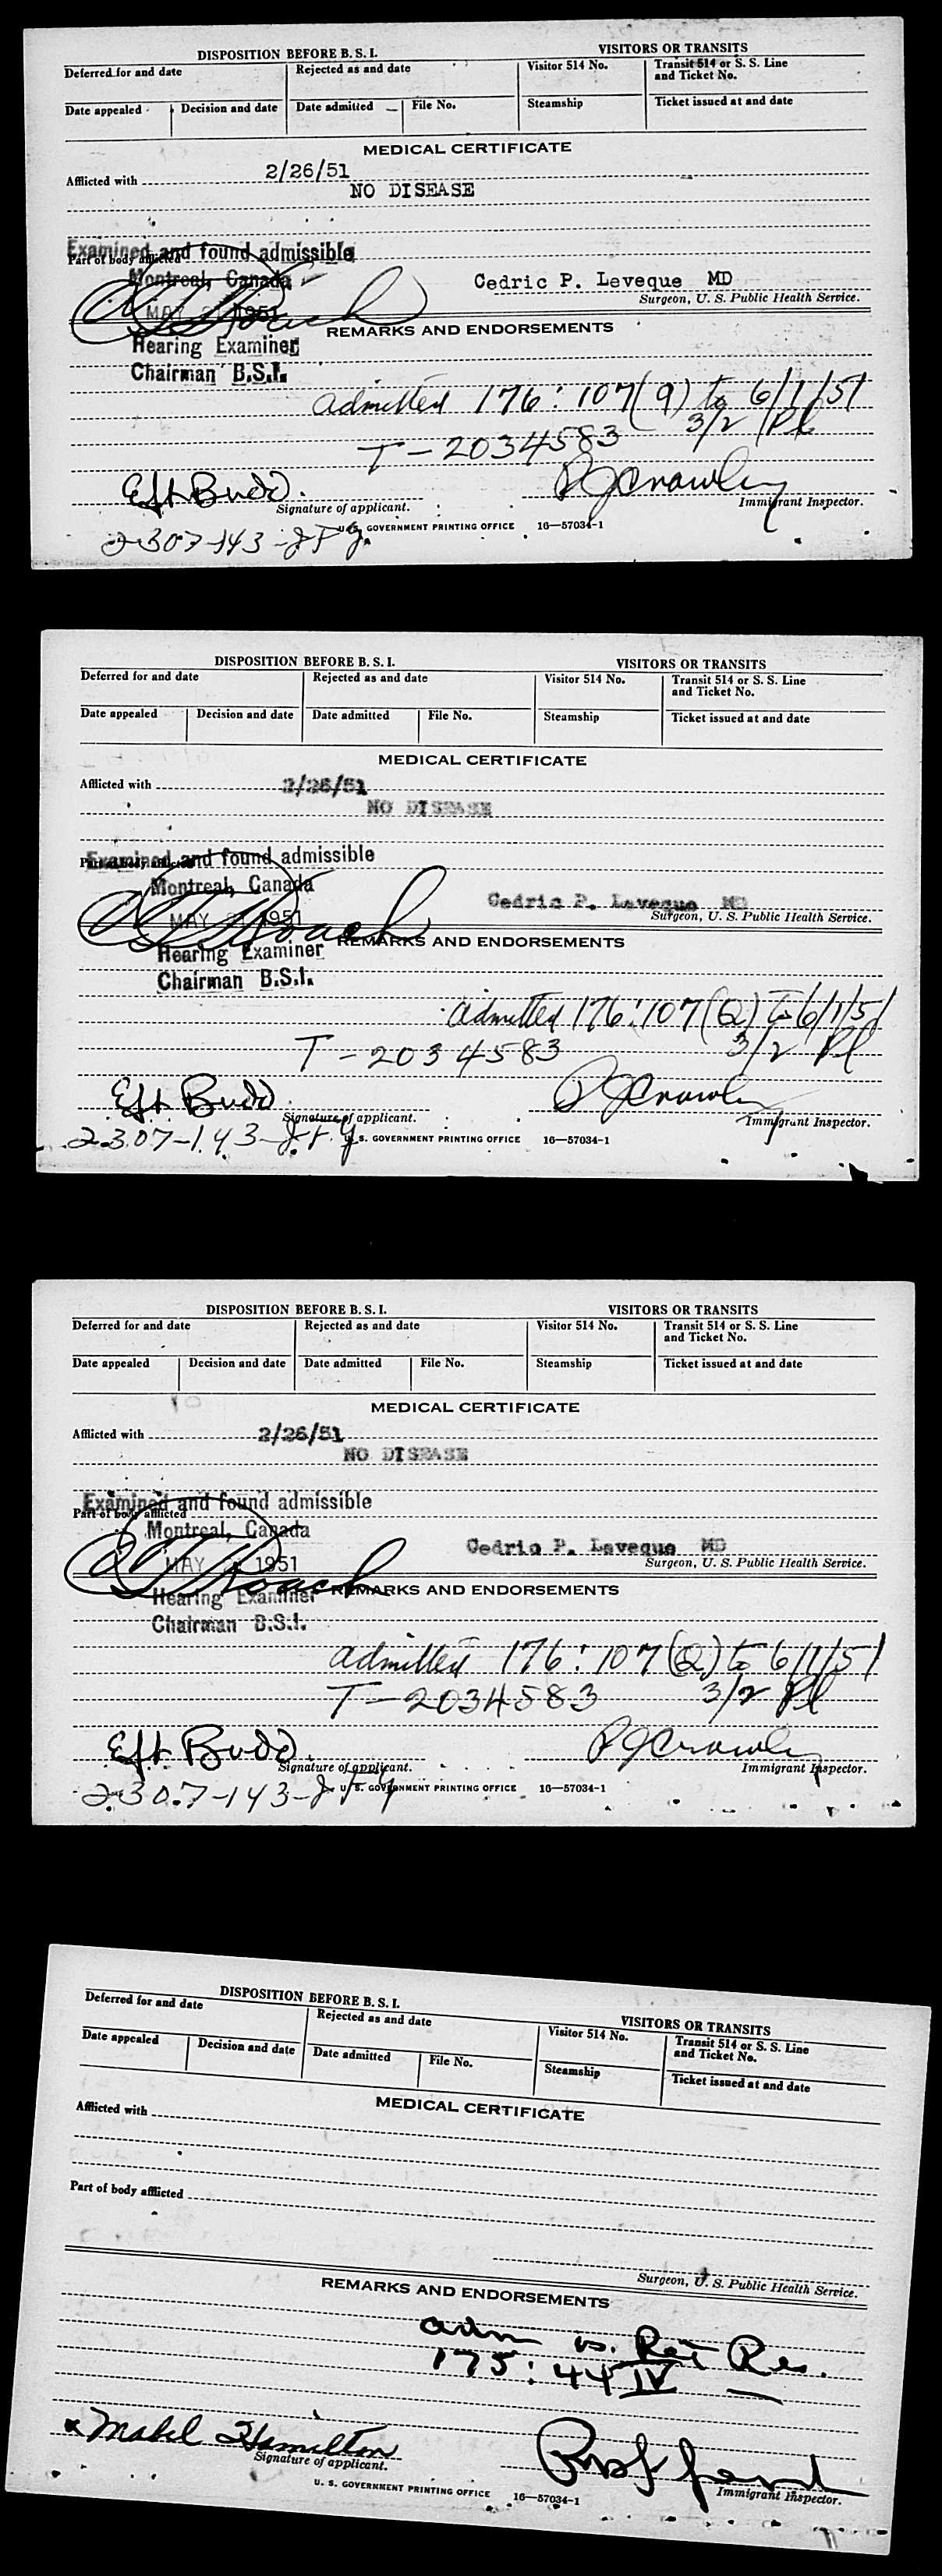 DISPOSITION BEFORE B. S. I. VISITORS OR TRANSITS
Deferred for and date Rejected as and date Visitor 514 No. Transit 514 or S. S. Line and Ticket No.
Date appealed Decision and date Date admitted File No. Steamship Ticket issued at and date
MEDICAL CERTIFICATE
Afflicted with 2/26/51
NO DISEASE
Examined and found admissible
Part of body afflicted
Montreal, Canada
Cedric P. Leveque MD
Surgeon, U. S. Public Health Service.
MAY 1951
REMARKS AND ENDORSEMENTS
Hearing Examiner
Chairman B.S.I.
admitted 176:107(9) to 6/1/51
T-2034583 3/2
Eft Budd. PJCrowley
Signature of applicant. Immigrant Inspector.
U. S. GOVERNMENT PRINTING OFFICE 16—57034-1
2307-143-
DISPOSITION BEFORE B. S. I. VISITORS OR TRANSITS
Deferred for and date Rejected as and date Visitor 514 No. Transit 514 or S. S. Line and Ticket No.
Date appealed Decision and date Date admitted File No. Steamship Ticket issued at and date
MEDICAL CERTIFICATE
Afflicted with 2/26/51
NO DISEASE
Examined and found admissible
Part of body afflicted
Montreal, Canada
Cedric P. Leveque MD
Surgeon, U. S. Public Health Service.
MAY 1951 Roach
REMARKS AND ENDORSEMENTS
Hearing Examiner
Chairman B.S.I.
admitted 176:107(Q) to 6/1/51
T-2034583 3/2
Eft Budd. PJCrowley
Signature of applicant. Immigrant Inspector.
U. S. GOVERNMENT PRINTING OFFICE 16—57034-1
2307-143-
DISPOSITION BEFORE B. S. I. VISITORS OR TRANSITS
Deferred for and date Rejected as and date Visitor 514 No. Transit 514 or S. S. Line and Ticket No.
Date appealed Decision and date Date admitted File No. Steamship Ticket issued at and date
MEDICAL CERTIFICATE
Afflicted with 2/26/51
NO DISEASE
Examined and found admissible
Part of body afflicted
Montreal, Canada
Cedric P. Leveque MD
Surgeon, U. S. Public Health Service.
MAY 1951 Roach
REMARKS AND ENDORSEMENTS
Hearing Examiner
Chairman B.S.I.
admitted 176:107(Q) to 6/1/51
T-2034583 3/2
Eft Budd. PJCrowley
Signature of applicant. Immigrant Inspector.
U. S. GOVERNMENT PRINTING OFFICE 16—57034-1
2307-143-
DISPOSITION BEFORE B. S. I. VISITORS OR TRANSITS
Deferred for and date Rejected as and date Visitor 514 No. Transit 514 or S. S. Line and Ticket No.
Date appealed Decision and date Date admitted File No. Steamship Ticket issued at and date
MEDICAL CERTIFICATE
Afflicted with
Part of body afflicted
Surgeon, U. S. Public Health Service.
REMARKS AND ENDORSEMENTS
adm as. Ret Res.
175:44 IV
x Mabel Hamilton
Signature of applicant. Immigrant Inspector.
U. S. GOVERNMENT PRINTING OFFICE 16—57034-1